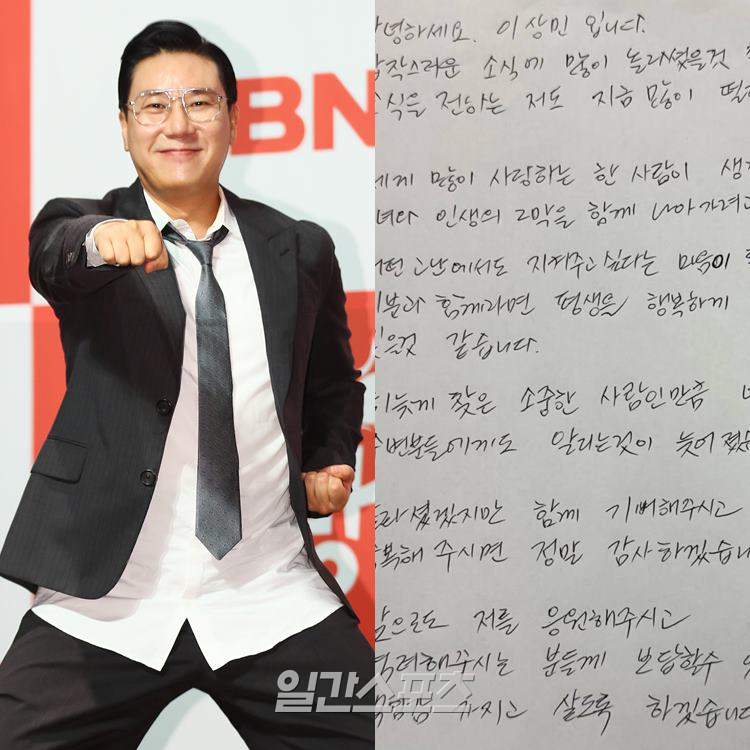 BN
안녕하세요. 이상민 입니다.
갑작스러운 소식에 많이 놀라셨을것
소식을 전하는 저도 지금 많이 떨
많이 사랑하는 한 사람이 생
인생의 2막을 함께 나아가려고
고난에서도 지켜주고 싶다는 마음이
함께라면 평생을 행복하게
같습니다.
뒤늦게 찾은 소중한 사람인만큼
주변분들에게도 알리는것이 늦어졌
놀라셨겠지만 함께 기뻐해주시고
축복해 주시면 정말 감사하겠습니
앞으로도 저를 응원해주시고
격려해주시는 분들께 보답할수
가지고 살도록 하겠습니다
일간스포츠